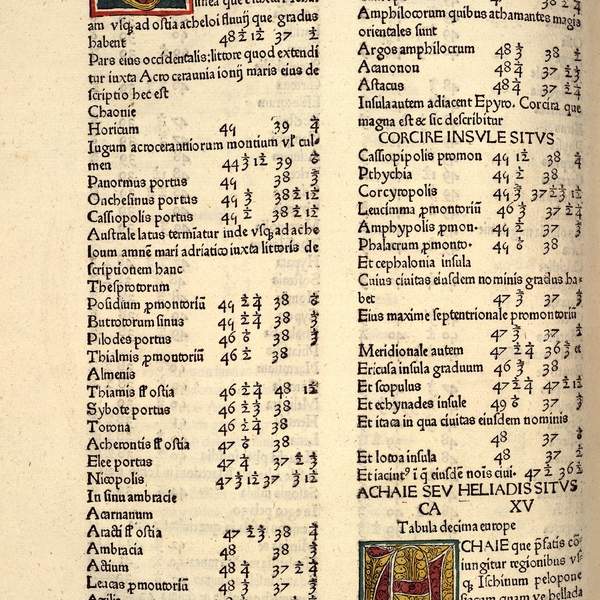 linea que
am vsq; ad ostia acheloi fluuij que gradus
habent 48 ½ 1/12 37 ½
Pars eius occidentalis: littore quod extendi
tur iuxta Acro ceraunia ionij maris eius de
scriptio hec est
Chaonie
Horicum 49 39 ¼
Iugum acrocerauniorum montium vl' cul-
men 44 ⅓ 1/12 39 6
Panormus portus 49 38 ⅔
Onchesinus portus 49 ⅓ 38 ½ 1/12
Cassiopolis portus 49 ½ 38 ½ 1/12
Australe latus terminatur inde vsq; ad ache
loum amnē mari adriatico iuxta littoris de
scriptionem hanc
Thesprotorum
Posidium ꝓmontoriū 49 ½ ¼ 38 6
Butrotum sinus 49 ½ ¼ 38 ⅓
Pilodes portus 46 6 38 ⅓
Thialmis ꝓmontoriū 46 ½ 38
Almenis
Thiamis fl' ostia 46 ½ ¼ 48 1/12
Sybote portus 46 ½ ⅓ 38
Torona 46 ½ ¼ 38
Acherontis fl' ostia 47 6 38
Elee portus 47 ¼ 37 ½ ⅓
Nicopolis 47 ⅓ 1/12 37 ⅓ 1/12
In sinu ambracie
Acarnanum
Aracti fl' ostia 47 ½ ⅓ 38 ¼
Ambracia 48 38 ⅓
Actium 48 ¼ 37 ½ ¼
Leucas ꝓmontoriū 48 ⅓ 37 ⅓
Amphilocorum quibus athamantes magis
orientales sunt
Argos amphilocrum 48 ⅓ 38 ½
Acanonon 48 ¼ 37 ½ ⅓
Astacus 48 ¼ 37 ½
Insula autem adiacent Epyro. Corcira que
magna est & sic describitur
CORCIRE INSVLE SITVS
Cassiopipolis promon 49 1/12 38 ¼
Pthychia 49 ½ 38
Corcyropolis 49 ⅓ 37 ½ ⅓ 1/12
Leucimma ꝓmontoriū 46 ⅓ 37 ½ ¼
Amphypolis ꝓmon. 49 ⅓ 38
Phalacrum ꝓmonto. 49 6 38
Et cephalonia insula
Cuius ciuitas eiusdem nominis gradus ha-
bet 47 ⅔ 37 ⅓
Eius maxime septentrionale promontoriū
47 ⅔ 37
Meridionale autem 47 ½ ¼ 36 ⅔ et
Ericusa insula graduum 46 ⅔ 38
Et scopulus 47 ½ ¼ 47 ½ 1/12
Et echynades insule 49 6 37 ⅓
Et itaca in qua ciuitas eiusdem nominis
48 37 6
Et lotoa insula 48 37
Et iacintꝰ ī q̄ eiusdē nois ciui. 47 ½ 36 ½
ACHAIE SEV HELIADIS SITVS
CA XV
Tabula decima europe
ACHAIE que p̄fatis cō
iungitur regionibus vs
q; Ischinum pelopone